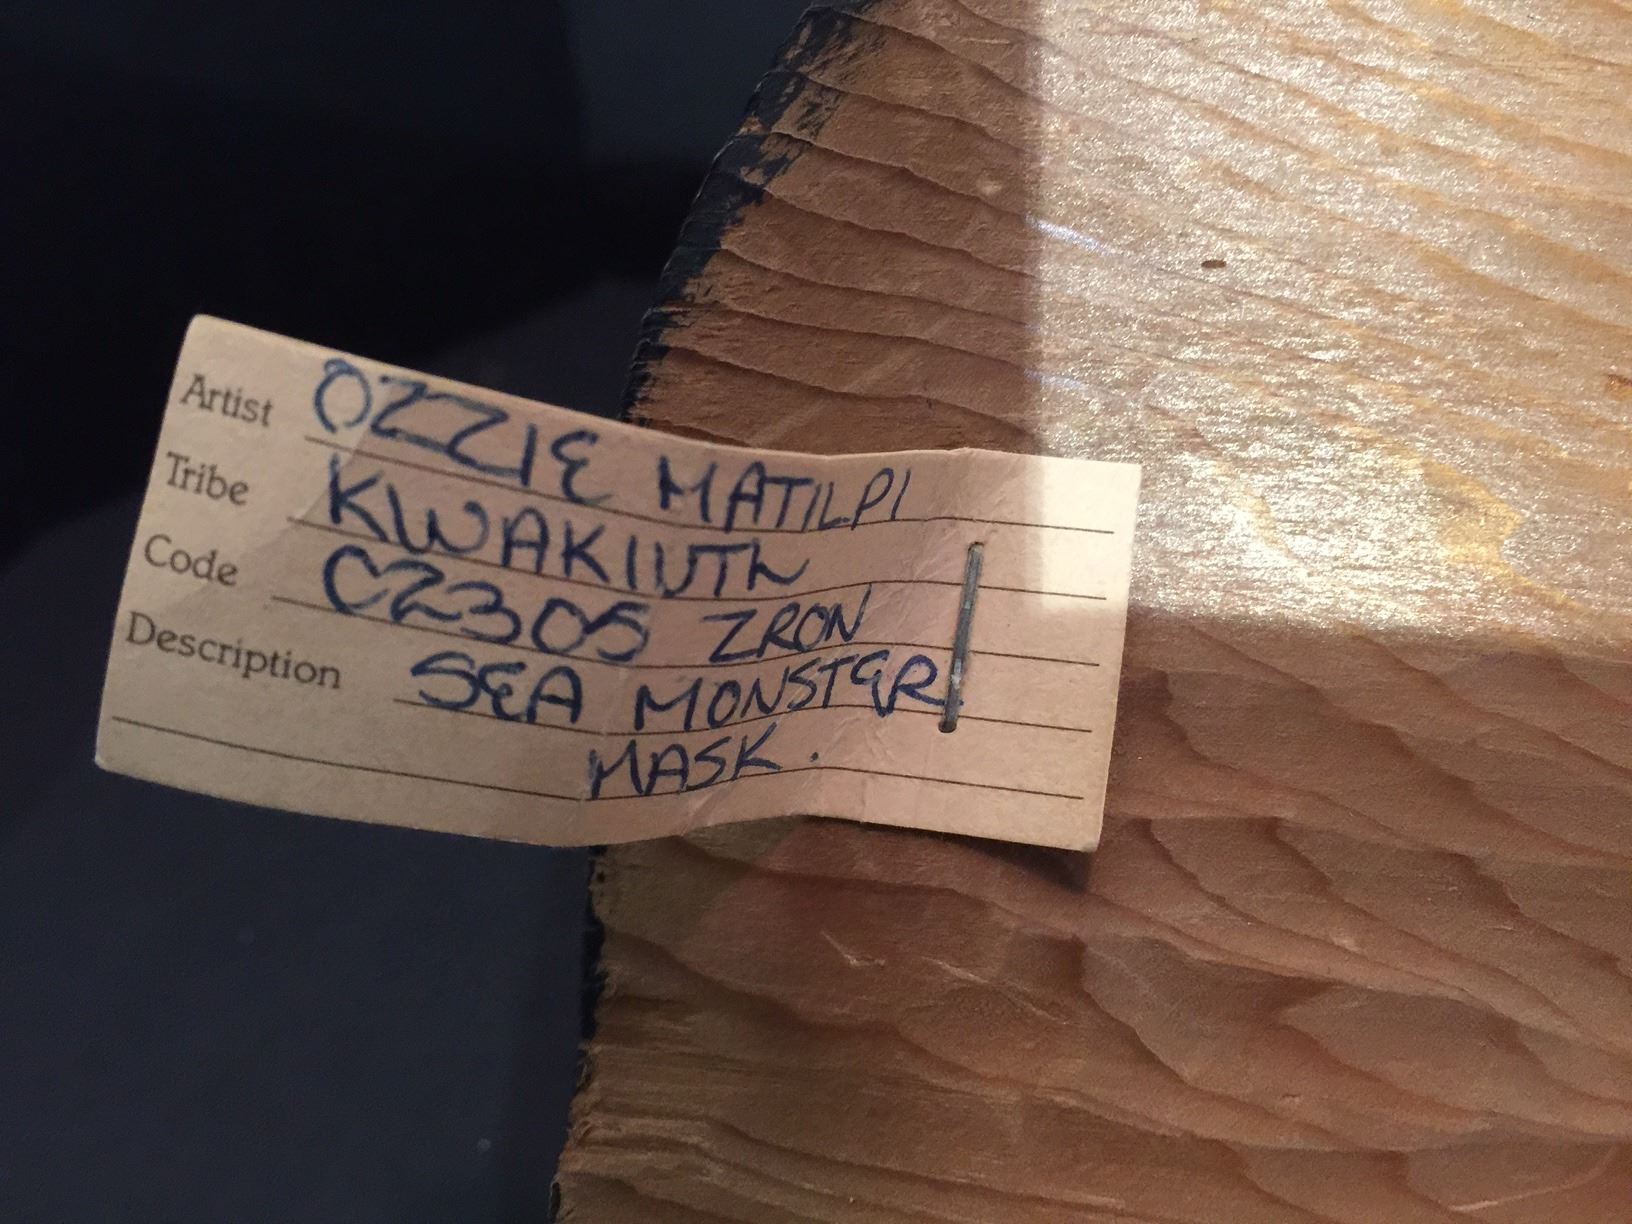 Artist OZZIE MATILPI
Tribe KWAKIUTL
Code CZ305 ZRON
Description SEA MONSTER
MASK.